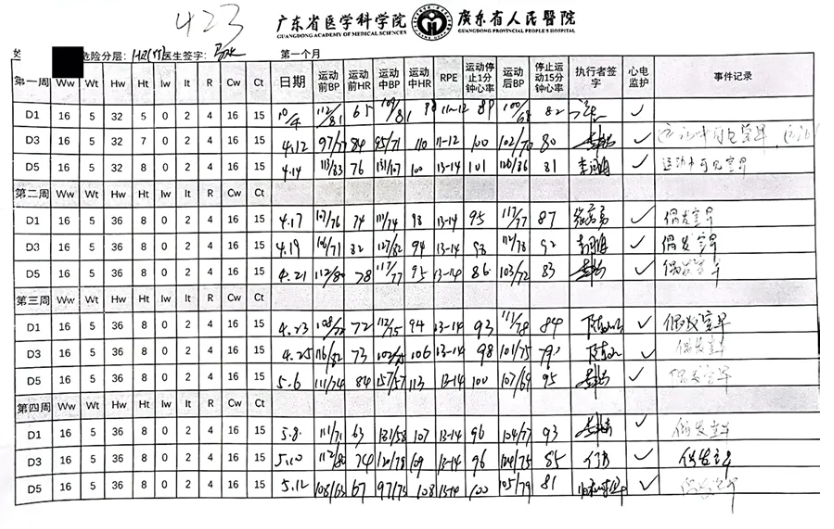 423
广东省医学科学院 廣東省人民醫院
GUANGDONG ACADEMY OF MEDICAL SCIENCES GUANGDONG PROVINCIAL PEOPLE'S HOSPITAL
危险分层: 医生签字: 第一个月
第一周 Ww Wt Hw Ht Iw It R Cw Ct 日期 运动前BP 运动前HR 运动中BP 运动中HR RPE 运动停止1分钟心率 运动后BP 停止运动15分钟心率 执行者签字 心电监护 事件记录
D1 16 5 32 5 0 2 4 16 15 112/81 65 11-12 89 82 ✓
D3 16 5 32 7 0 2 4 16 15 4.12 97/77 84 95/71 110 11-12 100 102/70 80 ✓
D5 16 5 32 8 0 2 4 16 15 4.14 113/83 76 131/107 100 13-14 101 120/86 81 ✓ 运动中可见室早
第二周 Ww Wt Hw Ht Iw It R Cw Ct
D1 16 5 36 8 0 2 4 16 15 4.17 107/76 74 111/74 98 13-14 95 117/77 87 ✓ 偶发室早
D3 16 5 36 8 0 2 4 16 15 4.19 116/71 82 127/82 94 13-14 98 112/78 92 ✓ 偶发室早
D5 16 5 36 8 0 2 4 16 15 4.21 112/80 78 117/77 95 13-14 86 103/72 83 ✓ 偶发室早
第三周 Ww Wt Hw Ht Iw It R Cw Ct
D1 16 5 36 8 0 2 4 16 15 4.23 108/72 72 112/75 94 13-14 93 111/78 84 ✓ 偶发室早
D3 16 5 36 8 0 2 4 16 15 4.25 116/82 73 106 13-14 98 101/75 ✓ 偶发室早
D5 16 5 36 8 0 2 4 16 15 5.6 111/74 84 157/57 113 13-14 100 107/69 95 ✓ 偶发室早
第四周 Ww Wt Hw Ht Iw It R Cw Ct
D1 16 5 36 8 0 2 4 16 15 5.8 111/71 63 131/58 107 13-14 96 104/77 93 ✓ 偶发室早
D3 16 5 36 8 0 2 4 16 15 5.10 112/80 74 130/78 109 13-14 96 104/75 85 ✓ 偶发室早
D5 16 5 36 8 0 2 4 16 15 5.12 108/63 67 97/73 108 13-14 100 105/79 81 ✓ 偶发室早